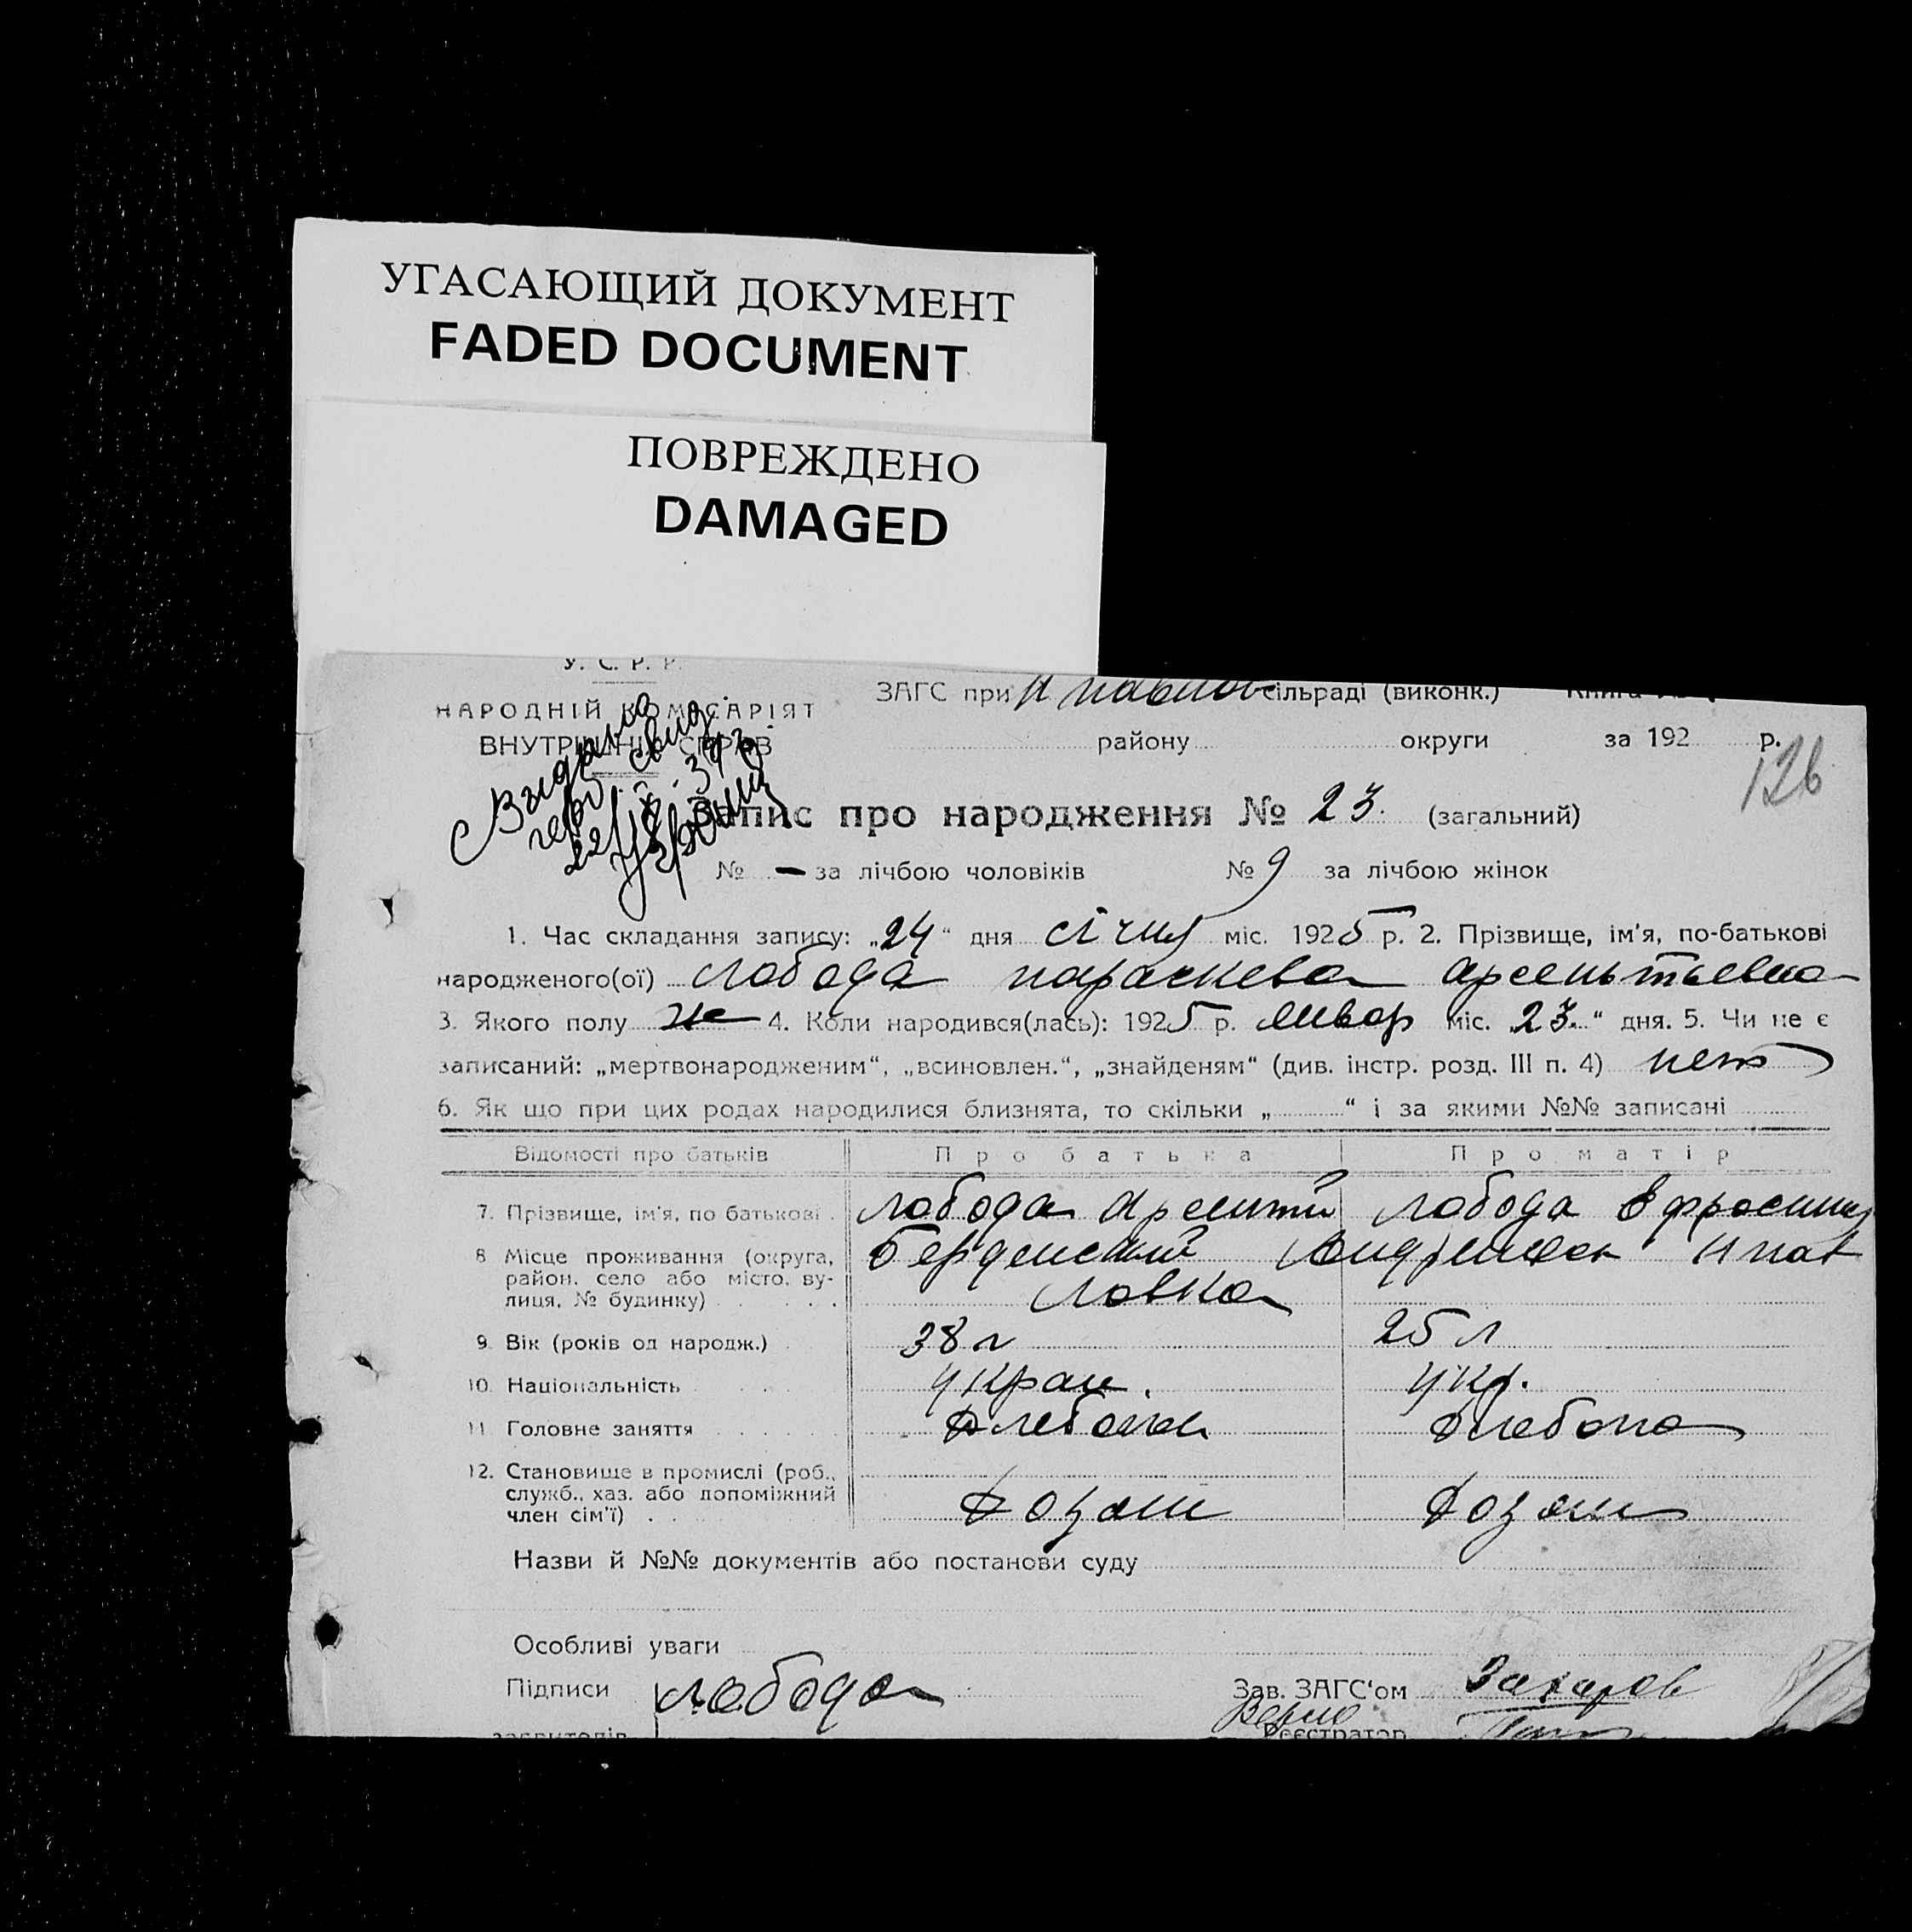 УГАСАЮЩИЙ ДОКУМЕНТ
FADED DOCUMENT
ПОВРЕЖДЕНО
DAMAGED
У. С. Р. Р.
НАРОДНІЙ КОМІСАРІЯТ
ВНУТРІШНІХ СПРАВ
ЗАГС при Н павлов сільраді (виконк.) Книга
району округи за 192 р.
126
Запис про народження № 23. (загальний)
№ — за лічбою чоловіків № 9 за лічбою жінок
1. Час складання запису: „24“ дня січня міс. 1925 р. 2. Прізвище, ім'я, по-батькові
народженого(ої) Лобода параскева Арсентьевна
3. Якого полу ж 4. Коли народився(лась): 1925 р. январ міс. „23.“ дня. 5. Чи не є
записаний: „мертвонародженим“, „всиновлен.“, „знайденям“ (див. інстр. розд. III п. 4) нет
6. Як що при цих родах народилися близнята, то скільки „ “ і за якими №№ записані
Відомості про батьків Про батька Про матір
7. Прізвище, ім'я, по батькові Лобода Арсентий Лобода Ефросиния
8 Місце проживання (округа, район, село або місто, вулиця, № будинку) Бердянский Андреевск Н пав
ловка
9. Вік (років од народж.) 38 л 25 л
10. Національність Украи. Укр.
11 Головне заняття хлебопа хлебопа
12. Становище в промислі (роб., служб., хаз. або допоміжний член сім'ї) хозяин хозяин
Назви й №№ документів або постанови суду
Особливі уваги
Підписи Лобода Зав. ЗАГС'ом Захаров
заявителів Верно Реєстратор